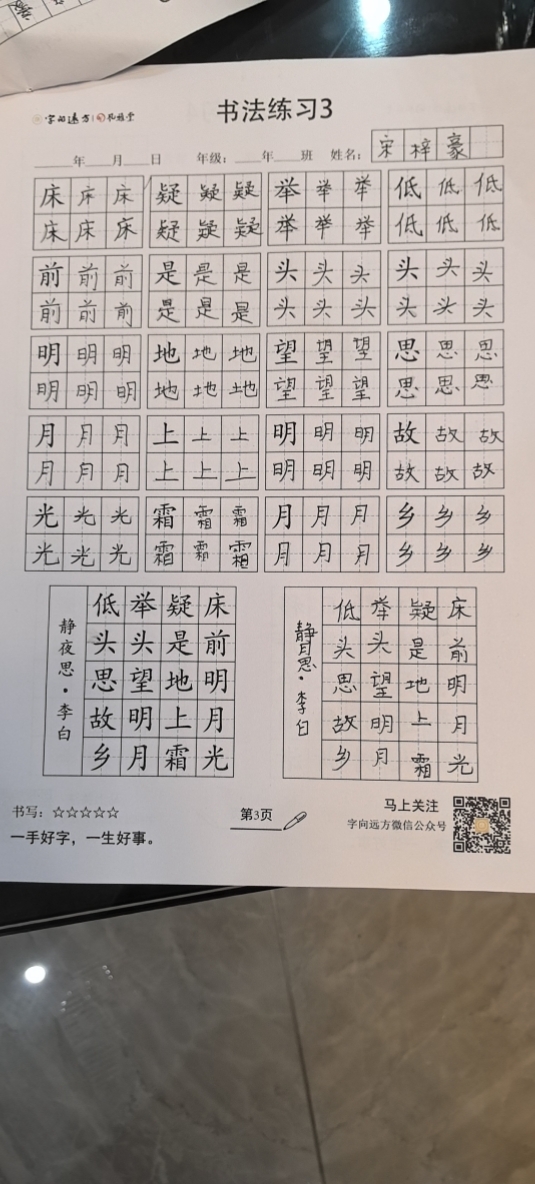 字向远方
书法练习3
年 月 日 年级： 年 班 姓名： 宋梓豪
床床床 疑疑疑 举举举 低低低
床床床 疑疑疑 举举举 低低低
前前前 是是是 头头头 头头头
前前前 是是是 头头头 头头头
明明明 地地地 望望望 思思思
明明明 地地地 望望望 思思思
月月月 上上上 明明明 故故故
月月月 上上上 明明明 故故故
光光光 霜霜霜 月月月 乡乡乡
光光光 霜霜霜 月月月 乡乡乡
床前明月光
疑是地上霜
举头望明月
低头思故乡
静夜思·李白
床前明月光
疑是地上霜
举头望明月
低头思故乡
李白
书写：☆☆☆☆☆
一手好字，一生好事。
第3页
马上关注
字向远方微信公众号